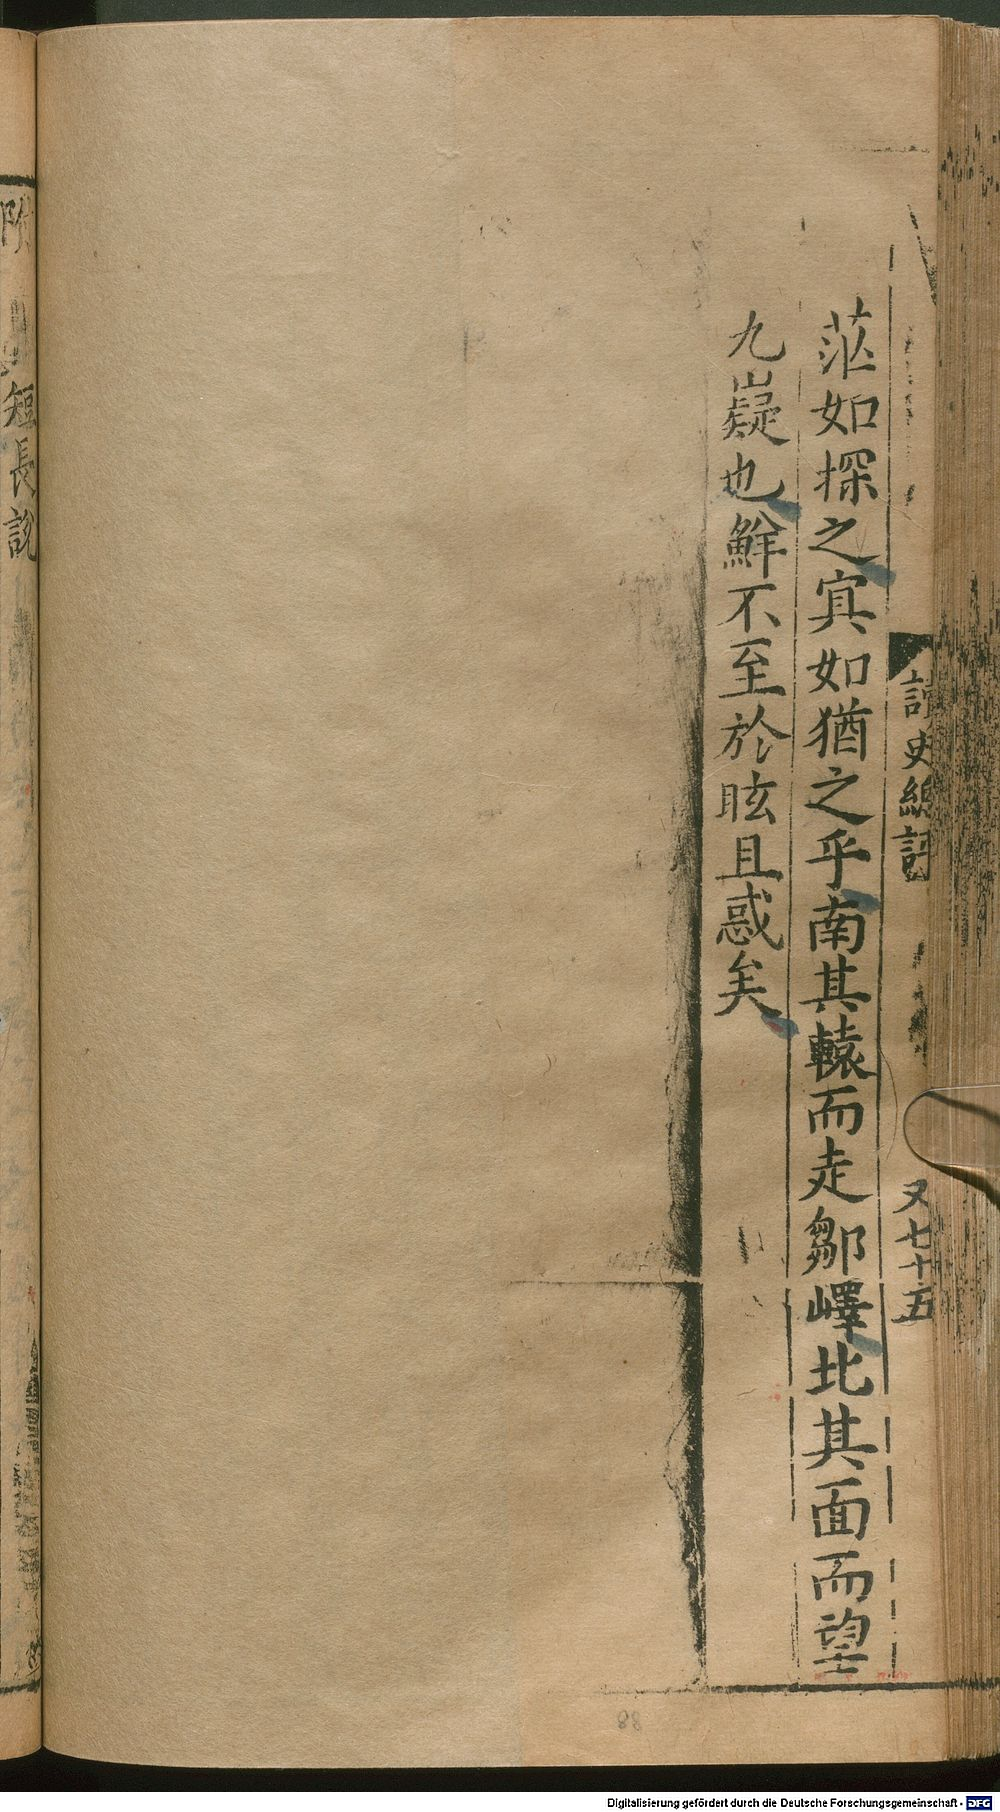 讀史總評
又七十五
茫如探之㝠如猶之乎南其轅而走鄒嶧北其面而望
九嶷也鮮不至於眩且惑矣
附
短長說
88
Digitalisierung gefördert durch die Deutsche Forschungsgemeinschaft - DFG